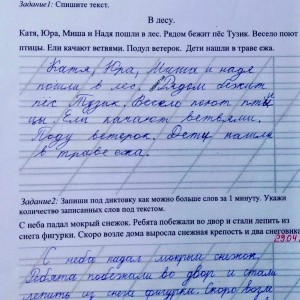 Задание1: Спишите текст.
В лесу.
Катя, Юра, Миша и Надя пошли в лес. Рядом бежит пёс Тузик. Весело поют
птицы. Ели качают ветвями. Подул ветерок. Дети нашли в траве ежа.
Катя, Юра, Миша и надя
пошли в лес. Рядом бежит
пёс Тузик. Весело поют пты
цы Ели качают ветвями.
Поду ветерок. Дети нашли
в траве ежа.
Задание2: Запиши под диктовку как можно больше слов за 1 минуту. Укажи
количество записанных слов под текстом.
С неба падал мокрый снежок. Ребята побежали во двор и стали лепить из
снега фигурки. Скоро возле дома выросла снежная крепость и два снеговика
29.04
С неба падал мокрый снежок.
Ребята побежали во двор и стали
лепить из снега фигурки. Скоро возле